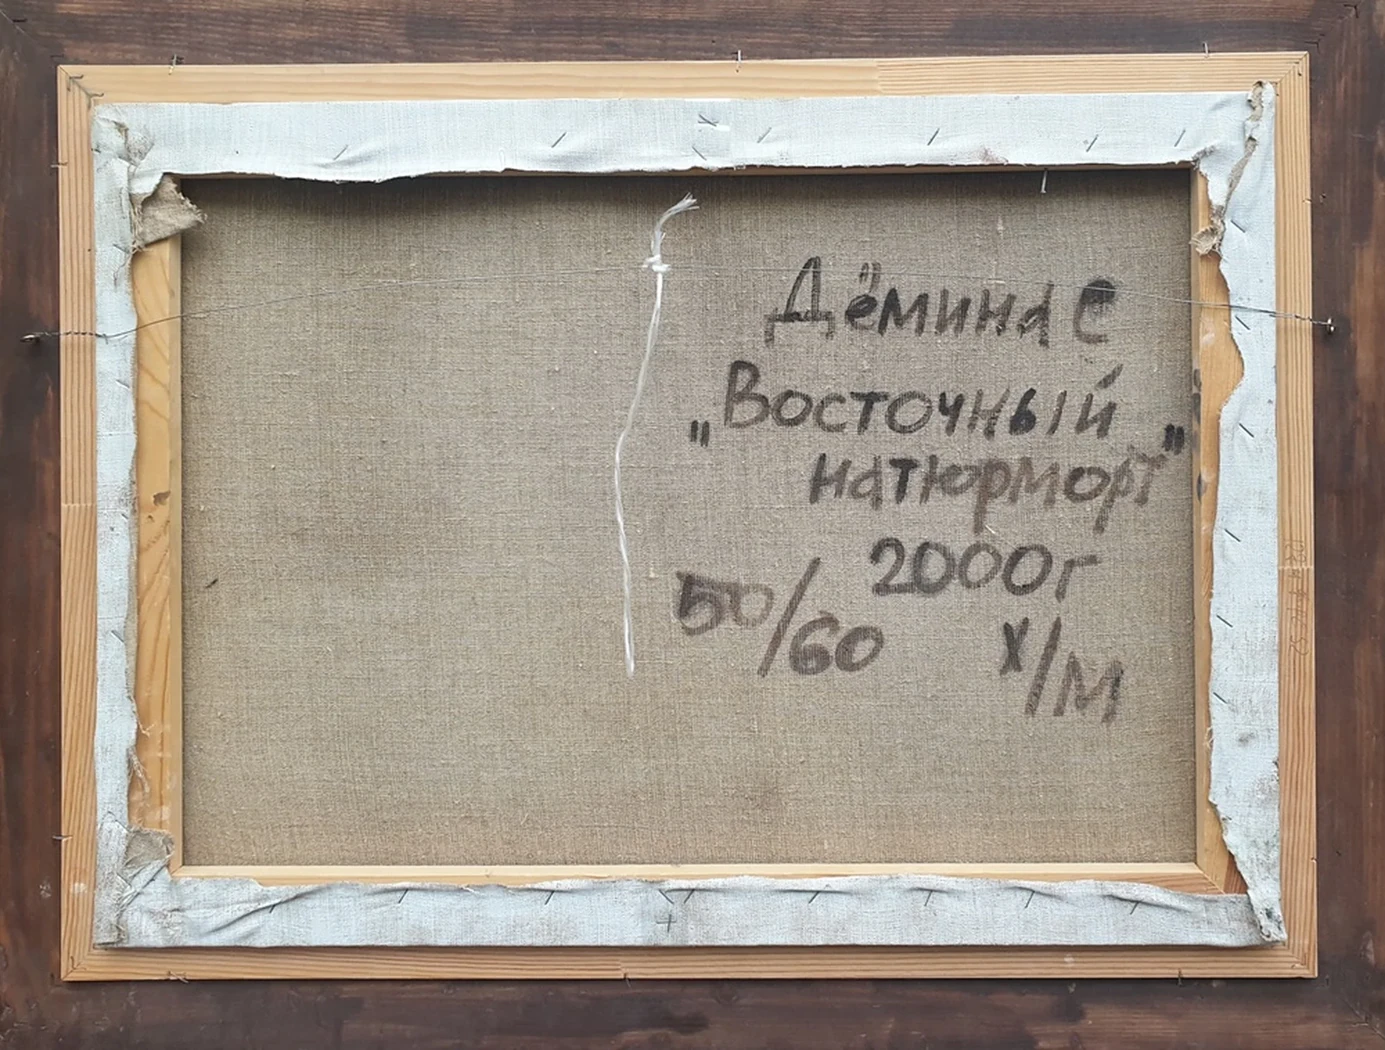 Дёмина Е
„Восточный
натюрморт"
2000г
50/60 х/м